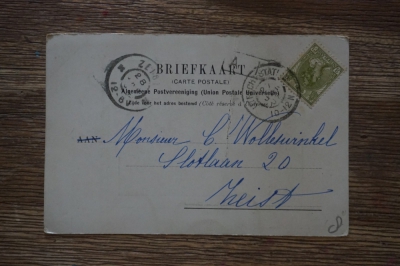 BRIEFKAART
(CARTE POSTALE)
Algemeene Postvereeniging (Union Postale Universelle)
Zijde voor het adres bestemd (Côté réservé à
AAN Monsieur C. Wolleswinkel
Slotlaan 20
Zeist